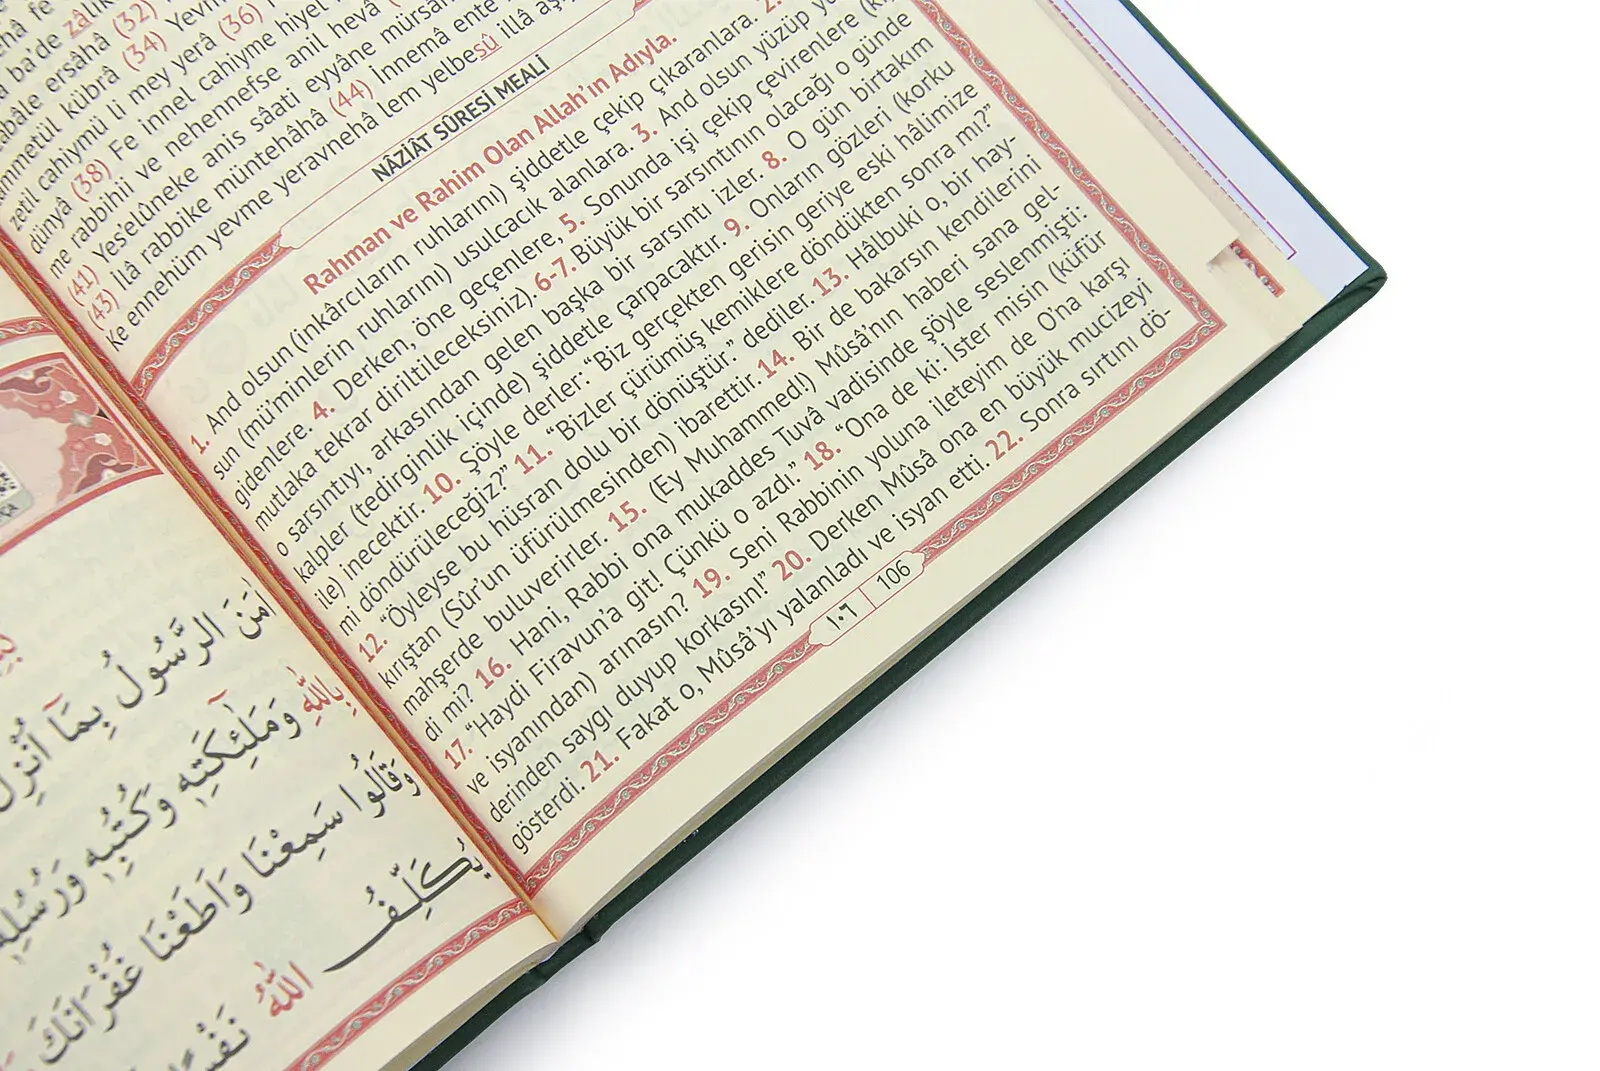 ba'de zâlik
bâle ersâhâ (32)
mmetül kübrâ (34) Yevm
zetil cahiymü li mey yerâ (36)
dünyâ (38) Fe innel cahiyme hiyel
me rabbihii ve nehennefse anil hevâ
(41) Yes'elûneke anis sâati eyyâne mürsâh
(43) İlâ rabbike müntehâhâ (44) İnnemâ ente
Ke ennehüm yevme yeravnehâ lem yelbesû illâ aşi
NÂZİÂT SÛRESİ MEALİ
Rahman ve Rahim Olan Allah'ın Adıyla.
1. And olsun (inkârcıların ruhlarını) şiddetle çekip çıkaranlara. 2.
sun (mü'minlerin ruhlarını) usulcacık alanlara. 3. And olsun yüzüp
gidenlere. 4. Derken, öne geçenlere, 5. Sonunda işi çekip çevirenlere (ki,
mutlaka tekrar diriltileceksiniz). 6-7. Büyük bir sarsıntının olacağı o günde
o sarsıntıyı, arkasından gelen başka bir sarsıntı izler. 8. O gün birtakım
kalpler (tedirginlik içinde) şiddetle çarpacaktır. 9. Onların gözleri (korku
ile) inecektir. 10. Şöyle derler: "Biz gerçekten gerisin geriye eski hâlimize
mi döndürüleceğiz?" 11. "Bizler çürümüş kemiklere döndükten sonra mı?"
12. "Öyleyse bu hüsran dolu bir dönüştür." dediler. 13. Hâlbuki o, bir hay-
kırıştan (Sûr'un üfürülmesinden) ibarettir. 14. Bir de bakarsın kendilerini
mahşerde buluverirler. 15. (Ey Muhammed!) Mûsâ'nın haberi sana gel-
di mi? 16. Hani, Rabbi ona mukaddes Tuvâ vadisinde şöyle seslenmişti:
17. "Haydi Firavun'a git! Çünkü o azdı." 18. "Ona de ki: İster misin (küfür
ve isyanından) arınasın? 19. Seni Rabbinin yoluna ileteyim de O'na karşı
derinden saygı duyup korkasın!" 20. Derken Mûsâ ona en büyük mucizeyi
gösterdi. 21. Fakat o, Mûsâ'yı yalanladı ve isyan etti. 22. Sonra sırtını dö-
١٠٦ 106
اٰمَنَ الرَّسُولُ بِمَٓا اُنْزِلَ
بِاللّٰهِ وَمَلٰٓئِكَتِه۪ وَكُتُبِه۪ وَرُسُلِه۪
وَقَالُوا سَمِعْنَا وَاَطَعْنَا غُفْرَانَكَ
يُكَلِّفُ اللّٰهُ نَفْسًا